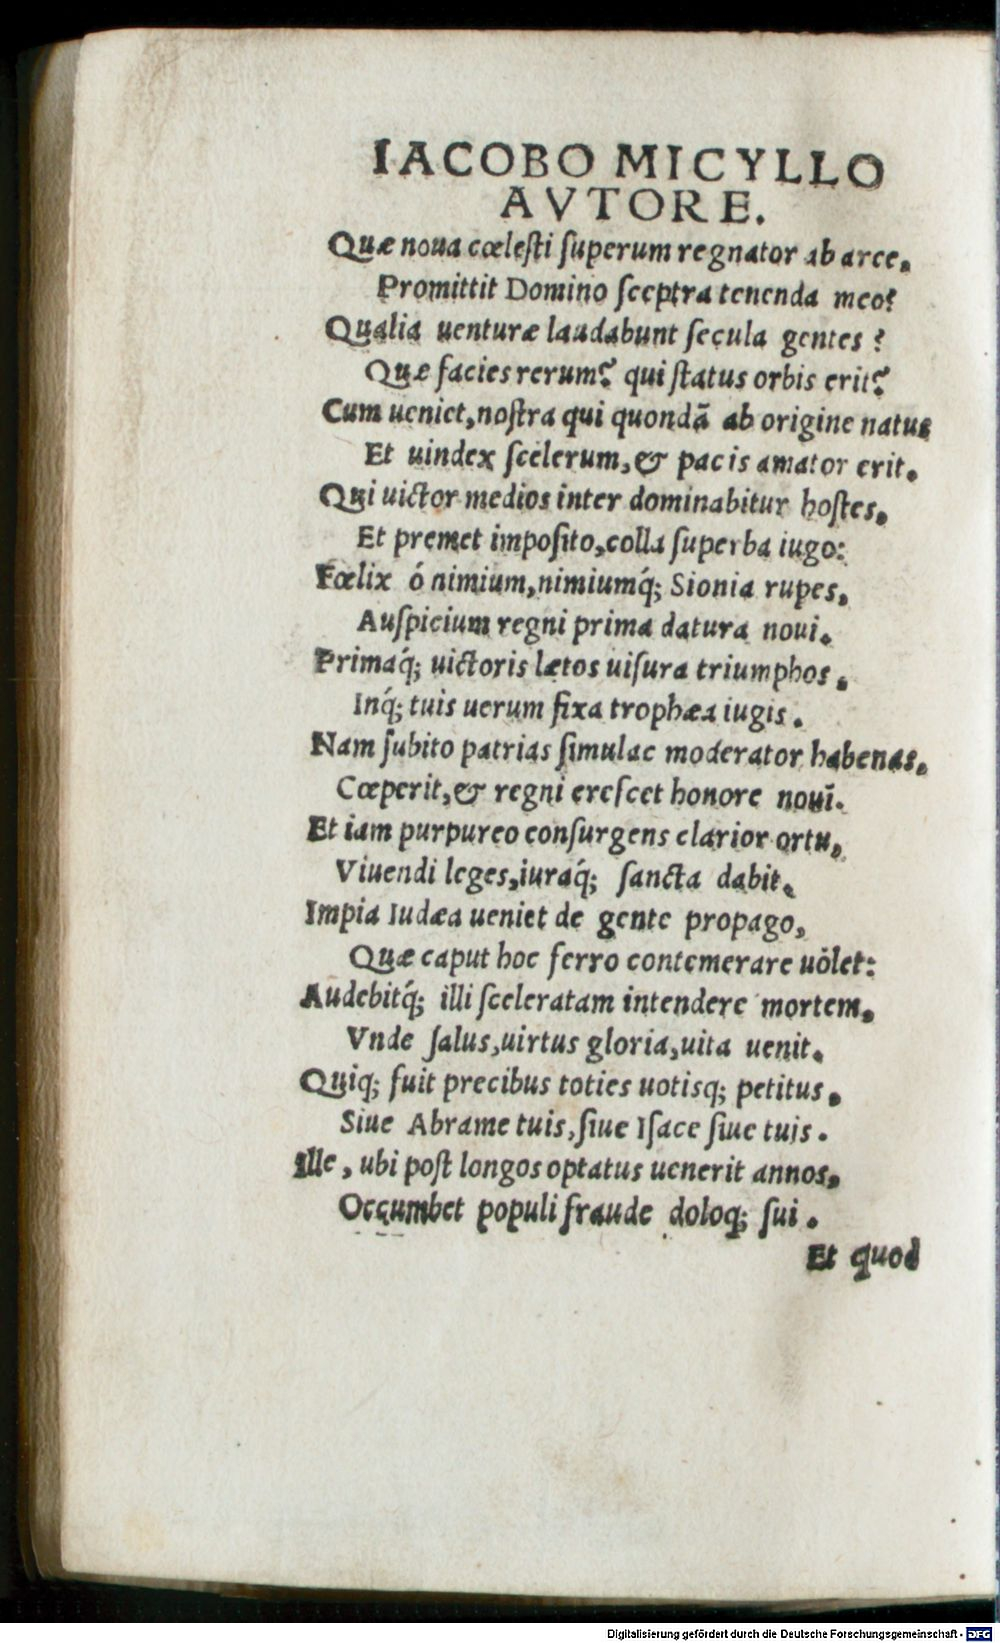 IACOBO MICYLLO
AVTORE.
Quæ noua cœlesti superum regnator ab arce,
Promittit Domino sceptra tenenda meo?
Qualia uenturæ laudabunt secula gentes ?
Quæ facies rerum? qui status orbis erit?
Cum ueniet, nostra qui quondā ab origine natus
Et uindex scelerum, & pacis amator erit.
Qui uictor medios inter dominabitur hostes,
Et premet imposito, colla superba iugo:
Fœlix ó nimium, nimiumq́; Sionia rupes,
Auspicium regni prima datura noui.
Primaq́; uictoris lætos uisura triumphos,
Inq́; tuis uerum fixa trophæa iugis.
Nam subito patrias simulac moderator habenas,
Cœperit, & regni crescet honore noui.
Et iam purpureo consurgens clarior ortu,
Viuendi leges, iuraq́; sancta dabit,
Impia Iudæa ueniet de gente propago,
Quæ caput hoc ferro contemerare uolet:
Audebitq́; illi sceleratam intendere mortem,
Vnde salus, uirtus gloria, uita uenit,
Quiq; fuit precibus toties uotisq; petitus,
Siue Abrame tuis, siue Isace siue tuis.
Ille, ubi post longos optatus uenerit annos,
Occumbet populi fraude doloq; sui.
Et quod
Digitalisierung gefördert durch die Deutsche Forschungsgemeinschaft - DFG